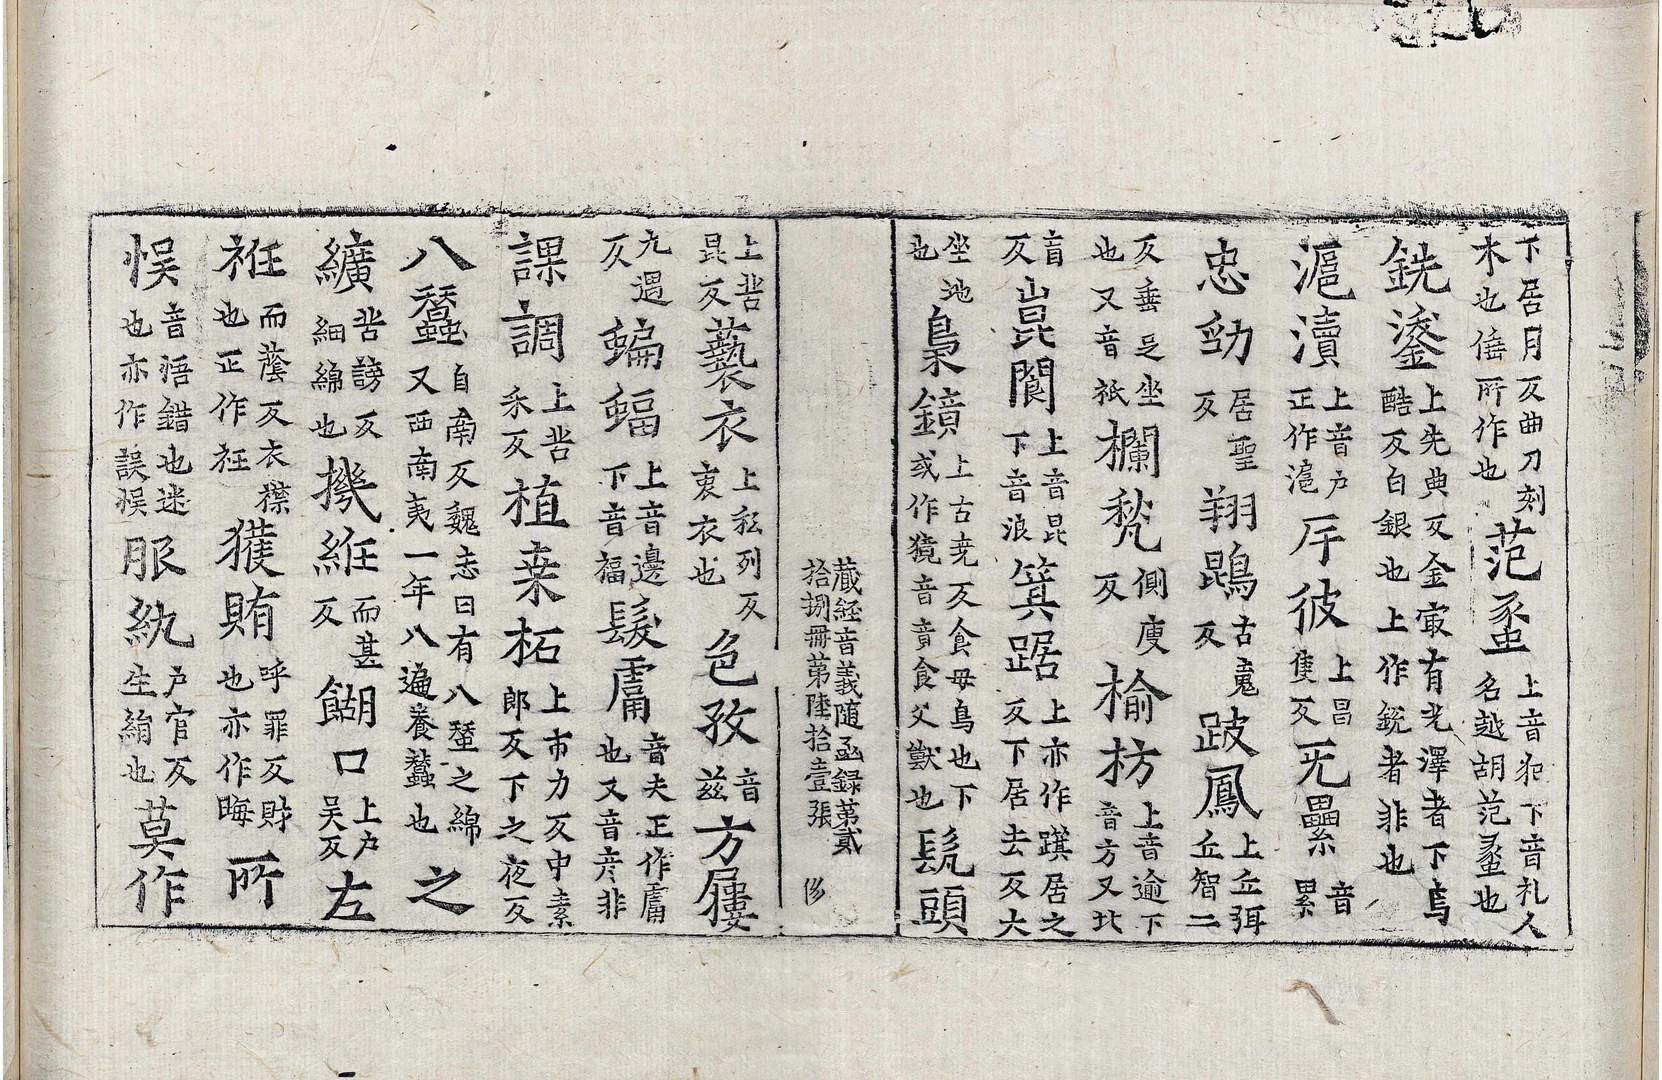 下居月反曲刀刻木也偹所作也范蚉上音犯下音礼人名越胡范蚉也
銑鋈上先典反金㝡有光澤者下烏酷反白銀也上作銳者非也
滬瀆上音戶正作滬厈彼上昌隻反旡纍音累
忠勁居聖反翔鵾古䰟反跛鳳上丘弭丘智二
反垂㞢坐也又音衹欄㼽側廋反榆枋上音逾下音方又北
盲反崑閬上音昆下音浪箕踞上亦作踑居之反下居去反大
坐地也梟鏡上古尭反食母鳥也下或作獍音竟食父獣也髡頭
藏經音義隨函録第貳拾捌冊第陸拾壹張
上苦昆反䙝衣上私列反裏衣也色孜音兹方屨
九遇反蝙蝠上音邊下音福髮膚音夫正作膚也又音彥非
課調上苦禾反植桒柘上市力反中桒郎反下之夜反
八蠶自南反魏志曰有八蚕之綿又西南夷一年八遍養蠶也之
纊苦謗反細綿也機絍而甚反餬口上戶吳反左
衽而蔭反衣襟也正作衽獲賄呼罪反財也亦作晦所
悞音悟錯也迷也亦作誤悮服紈戶官反生絹也莫作